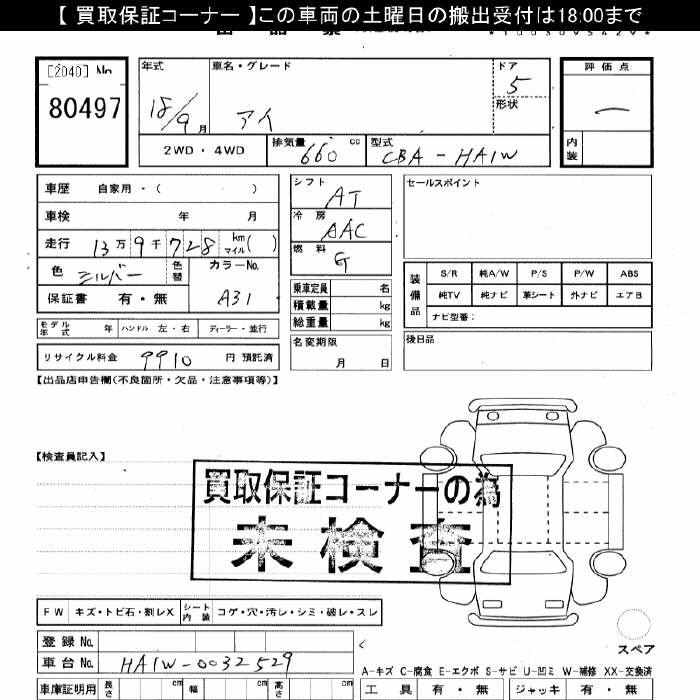 【 買取保証コーナー 】この車両の土曜日の搬出受付は18:00まで
[2040] No
80497
年式 18/9 月
車名・グレード アイ
ドア 5
形状
評価点 —
内装
2WD・4WD
排気量 660 cc
型式 CBA-HA1W
車歴 自家用・( )
車検 年 月
走行 13万9千728 km マイル( )
色 シルバー 色替
カラーNo. A31
保証書 有・無
シフト AT
冷房 AAC
燃料 G
乗車定員 名
積載量 kg
総重量 kg
セールスポイント
装備品
S/R 純A/W P/S P/W ABS
純TV 純ナビ 革シート 外ナビ エアB
ナビ型番:
モデル年式 年 ハンドル 左・右 ディーラー・並行
名変期限 月 日
後日品
リサイクル料金 9910 円 預託済
【出品店申告欄(不良箇所・欠品・注意事項等)】
【検査員記入】
買取保証コーナーの為
未検査
FW キズ・トビ石・割レX シート内装 コゲ・穴・汚レ・シミ・破レ・スレ
登録No.
車台No. HA1W-0032529
スペア
A-キズ C-腐食 E-エクボ S-サビ U-凹ミ W-補修 XX-交換済
車庫証明用 長さ cm 幅 cm 高さ cm
工具 有・無 ジャッキ 有・無